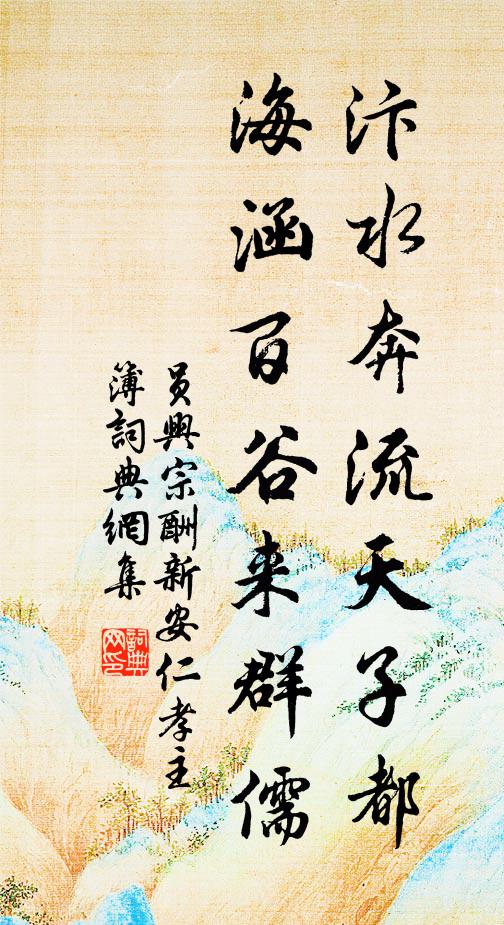 汴水奔流天子都
海涵百谷来群儒
员興宗酬新安仁孝主
簿詞典網集
詞典網印